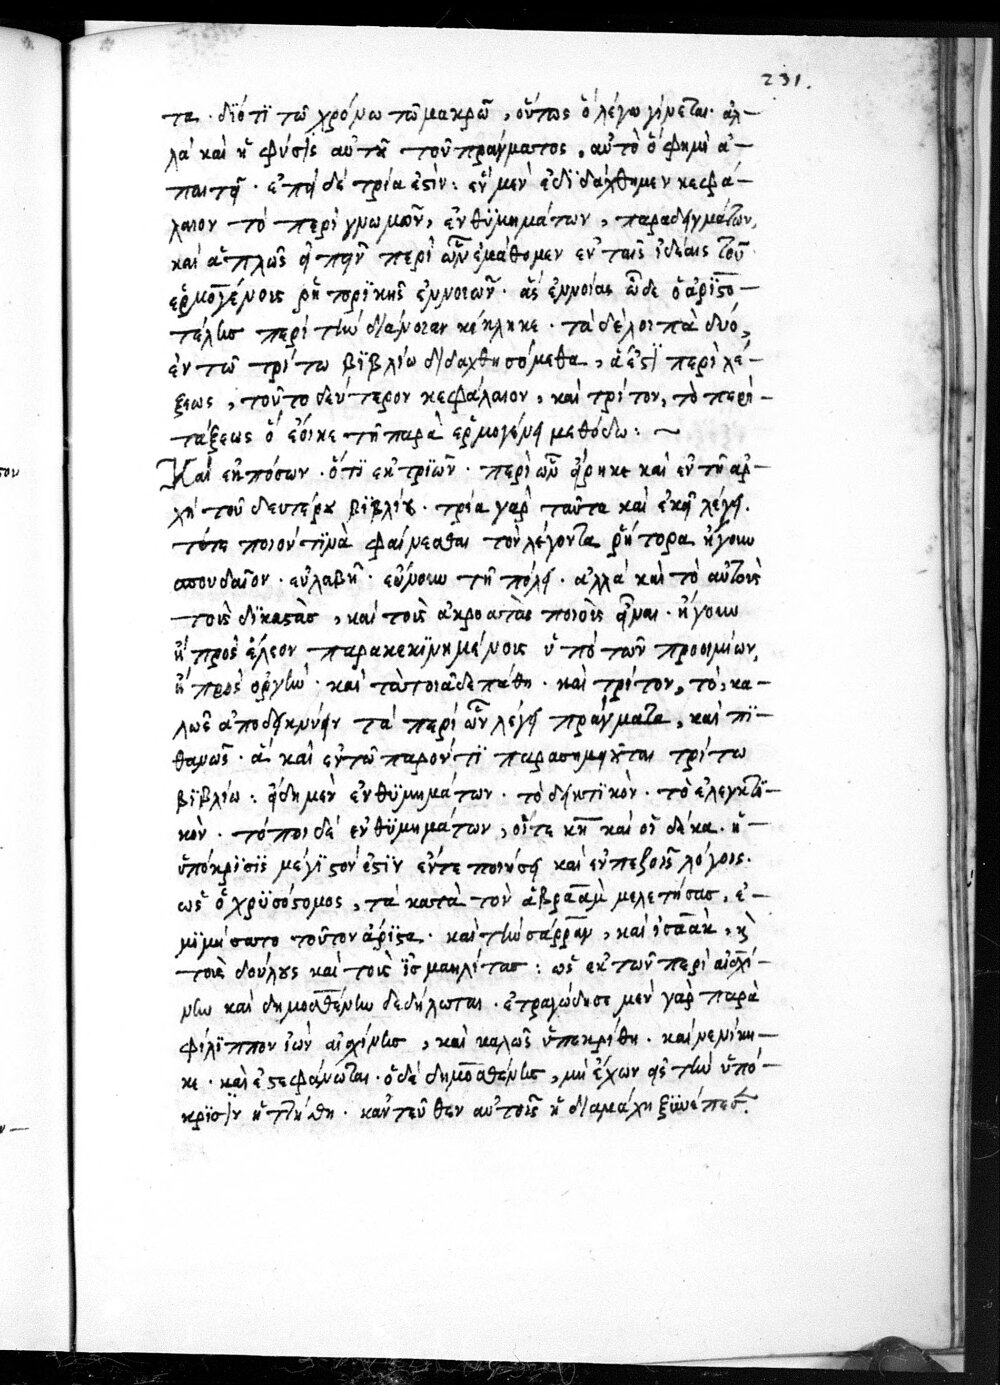 231.
τα · διότι τῶ χρόνω τῶ μακρῶ, οὕτως ὃ λέγω γίνεται· ἀλ-
λὰ καὶ ἡ φύσις αὐτὴ τοῦ πράγματος, αὐτὸ ὅ φημὶ ἀ-
παιτεῖ · ἐπεὶ δὲ τρία ἐστὶν: ἓν μὲν ἐδιδάχθημεν κεφά-
λαιον τὸ περὶ γνωμῶν, ἐνθυμημάτων, παραδειγμάτων,
καὶ ἁπλῶς εἰπεῖν περὶ ὧν ἐμάθομεν ἐν ταῖς ἰδέαις τοῦ
ἑρμογένους ῥητορικῆς ἐννοιῶν · ἃς ἐννοίας ὧδε ὁ ἀριστο-
τέλης περὶ τὴν διάνοιαν κέκληκε · τὰ δὲ λοιπὰ δύο,
ἐν τῶ τρίτω βιβλίω διδαχθησόμεθα, ἅ ἐστι περὶ λέ-
ξεως, τοῦτο δεύτερον κεφάλαιον, καὶ τρίτον, τὸ περὶ
τάξεως ὃ ἔοικε τῆ παρὰ ἑρμογένει μεθόδω: ~
Καὶ ἐκ πόσων · ὅτι ἐκ τριῶν · περὶ ὧν εἴρηκε καὶ ἐν τῆ ἀρ-
χῆ τοῦ δευτέρου βιβλίου · τρία γὰρ ταῦτα καὶ ἐκεῖ λέγει.
τότε ποιόν τινὰ φαίνεσθαι τὸν λέγοντα ῥήτορα ἤγουν
σπουδαῖον · εὐλαβῆ · εὔνουν τῆ πόλει · ἀλλὰ καὶ τὸ αὐτοὺς
τοὺς δικαστὰς, καὶ τοὺς ἀκροατὰς ποιοὺς εἶναι · ἤγουν
ἢ πρὸς ἔλεον παρακεκινημένους ὑπὸ τῶν προοιμίων,
ἢ πρὸς ὀργὴν · καὶ τὰ τοιάδε πάθη · καὶ τρίτον, τὸ, κα-
λῶς ἀποδεικνύειν τὰ περὶ ὧν λέγει πράγματα, καὶ πι-
θανῶς · ἃ καὶ ἐν τῶ παρόντι παρασημειοῦται τρίτω
βιβλίω: εἴδη μὲν ἐνθυμημάτων · τὸ δεικτικὸν · τὸ ἐλεγκτι-
κὸν · τόποι δὲ ἐνθυμημάτων, οἵ τε κη καὶ οἱ δέκα · ἡ
ὑπόκρισις μέγιστόν ἐστιν ἔν τε ποιήσει καὶ ἐν πεζοῖς λόγοις.
ὡς ὁ χρυσόστομος, τὰ κατὰ τὸν ἁβραὰμ μελετήσας, ἐ-
μιμήσατο τοῦτον ἄριστα · καὶ τὴν σάρραν, καὶ ἰσαὰκ, καὶ
τοὺς δούλους καὶ τοὺς ἰσμαηλίτας: ὡς ἐκ τῶν περὶ αἰσχί-
νην καὶ δημοσθένην δεδήλωται · ἐτραγώδησε μὲν γὰρ παρὰ
φίλιππον ἰὼν αἰσχίνης, καὶ καλῶς ὑπεκρίθη · καὶ νενίκη-
κε · καὶ ἐστεφάνωται · ὁ δὲ δημοσθένης, μὴ ἔχων εἰς τὴν ὑπό-
κρισιν ἡττήθη · κἀντεῦθεν αὐτοῖς ἡ διαμάχη ξυνέπεσ.